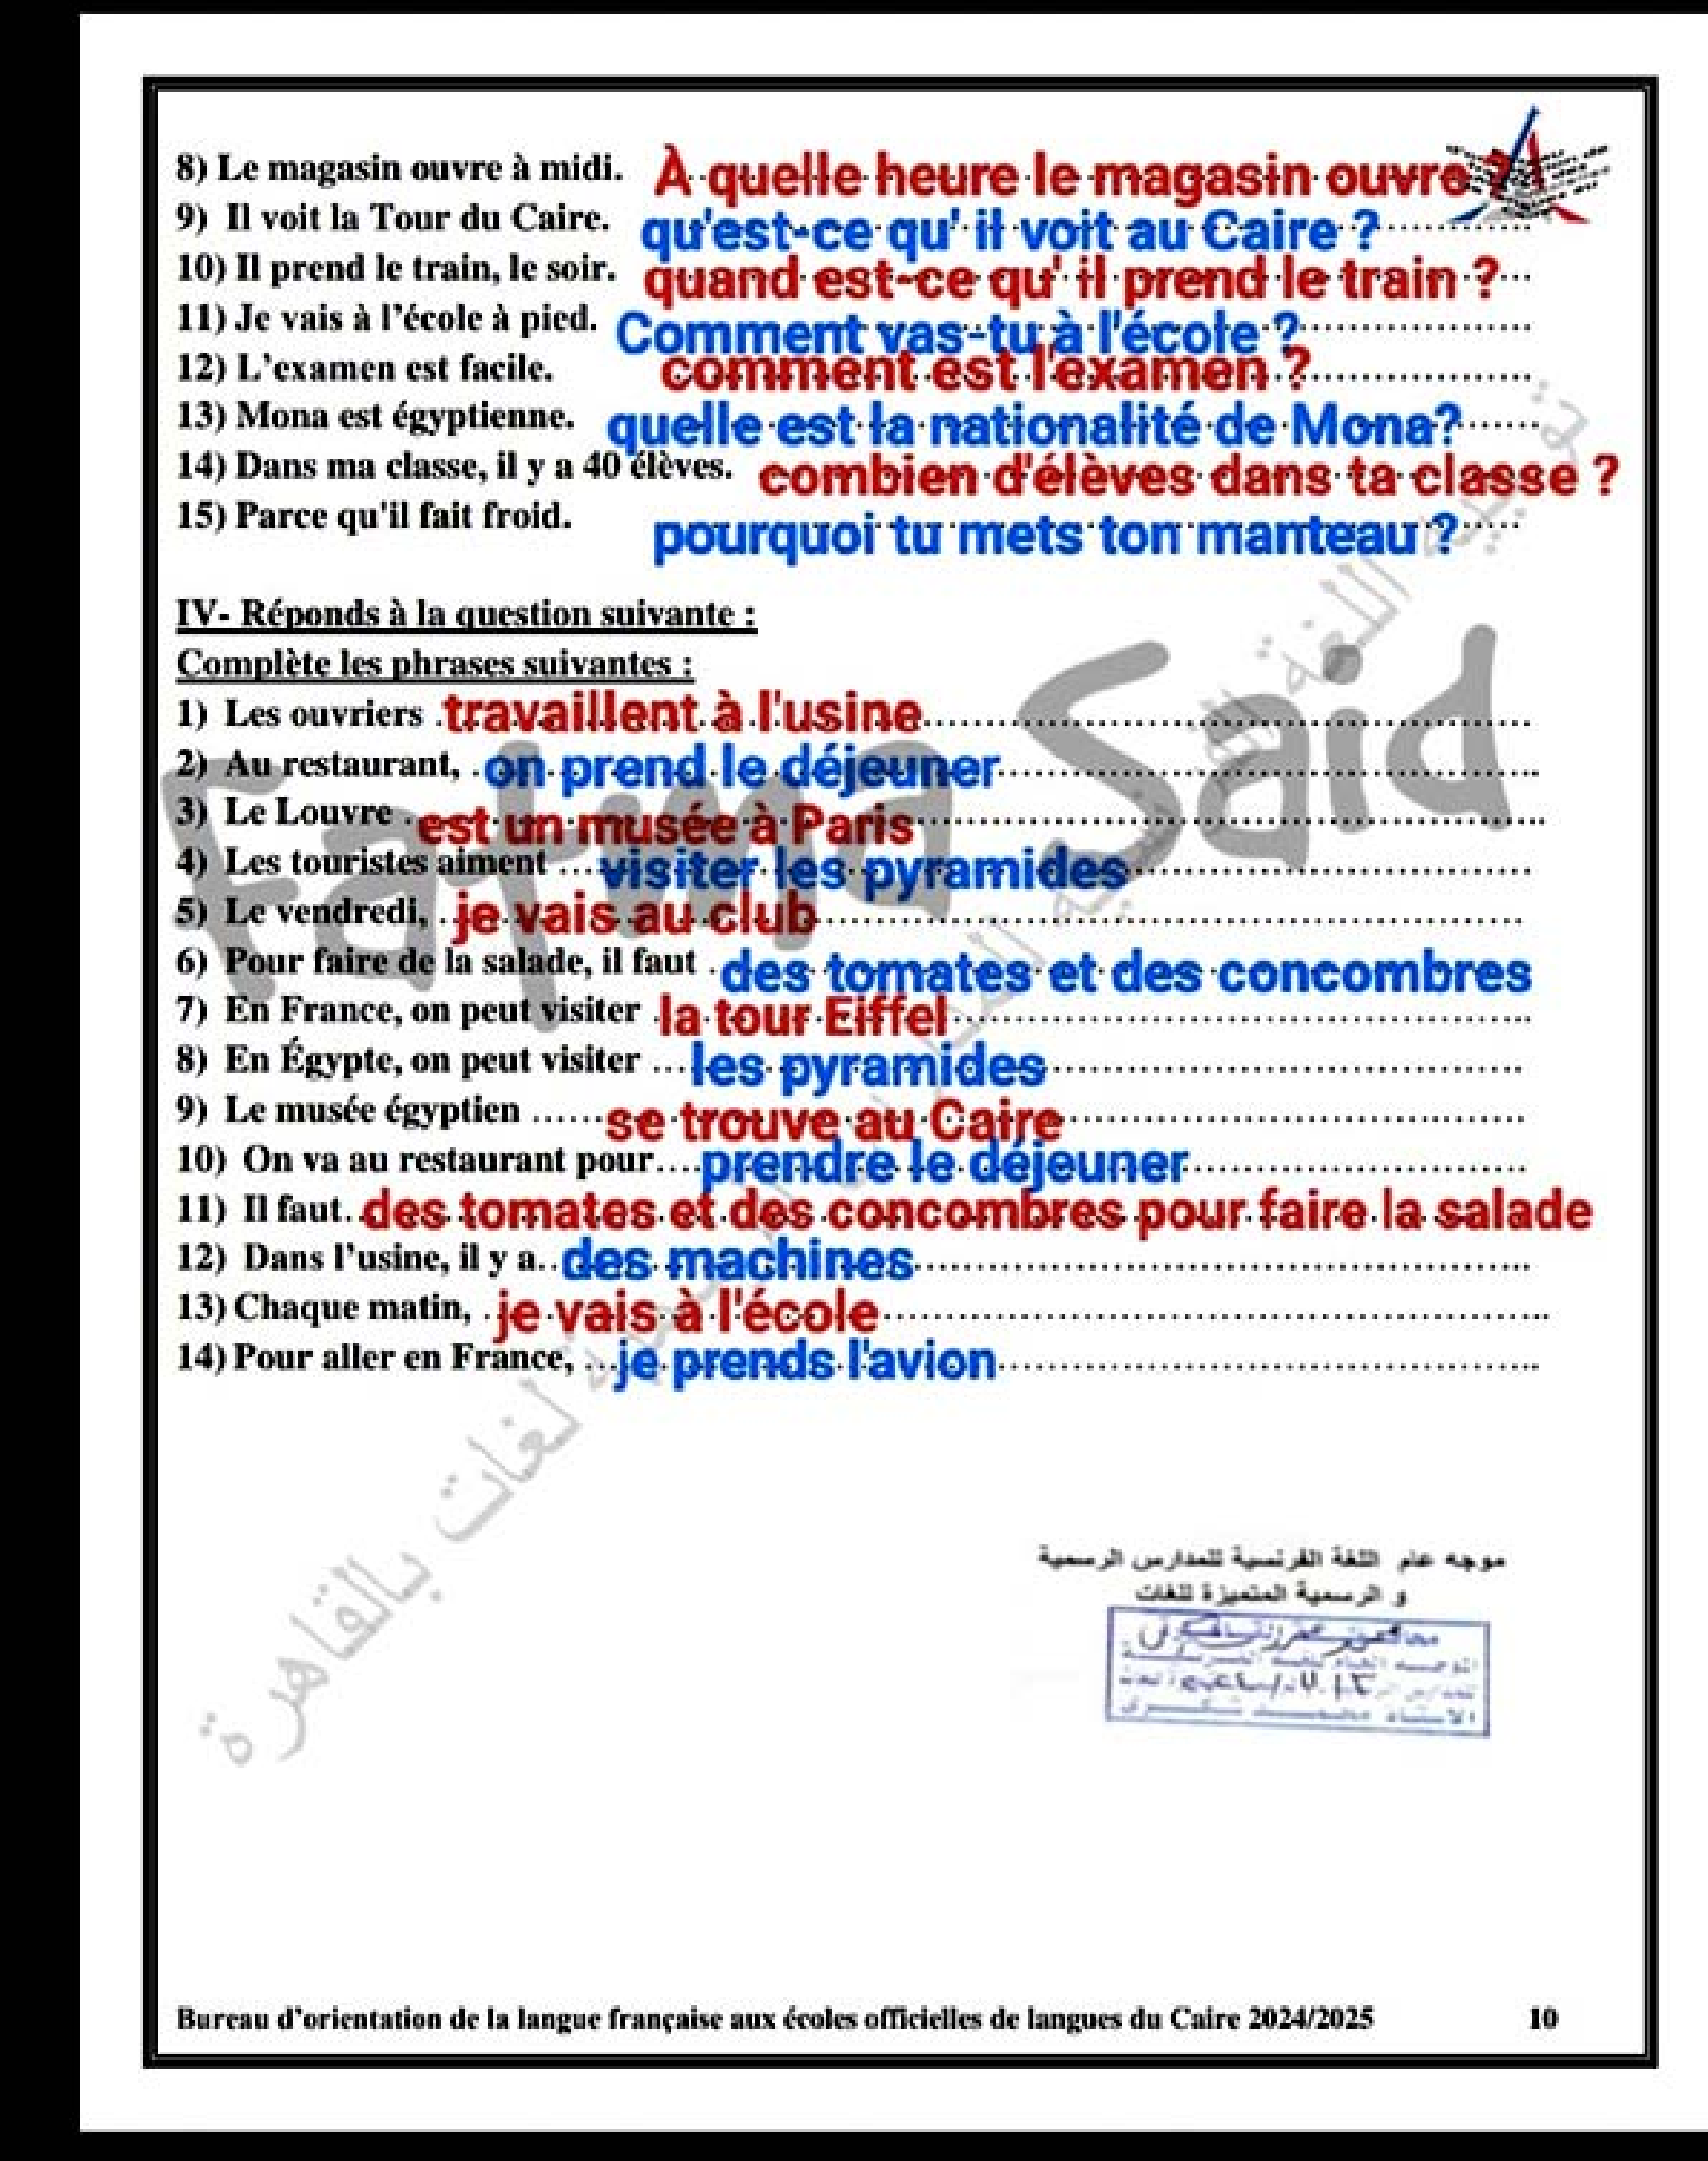 8) Le magasin ouvre à midi. À quelle heure le magasin ouvre ?
9) Il voit la Tour du Caire. qu'est-ce qu' il voit au Caire ?
10) Il prend le train, le soir. quand est-ce qu' il prend le train ?
11) Je vais à l'école à pied. Comment vas-tu à l'école ?
12) L'examen est facile. comment est l'examen ?
13) Mona est égyptienne. quelle est la nationalité de Mona?
14) Dans ma classe, il y a 40 élèves. combien d'élèves dans ta classe ?
15) Parce qu'il fait froid. pourquoi tu mets ton manteau ?
IV- Réponds à la question suivante :
Complète les phrases suivantes :
1) Les ouvriers travaillent à l'usine
2) Au restaurant, on prend le déjeuner
3) Le Louvre est un musée à Paris
4) Les touristes aiment visiter les pyramides
5) Le vendredi, je vais au club
6) Pour faire de la salade, il faut des tomates et des concombres
7) En France, on peut visiter la tour Eiffel
8) En Égypte, on peut visiter les pyramides
9) Le musée égyptien se trouve au Caire
10) On va au restaurant pour prendre le déjeuner
11) Il faut des tomates et des concombres pour faire la salade
12) Dans l'usine, il y a des machines
13) Chaque matin, je vais à l'école
14) Pour aller en France, je prends l'avion
Fatma Said
لغات بالقاهرة
موجه عام اللغة الفرنسية للمدارس الرسمية
و الرسمية المتميزة للغات
Bureau d'orientation de la langue française aux écoles officielles de langues du Caire 2024/2025 10